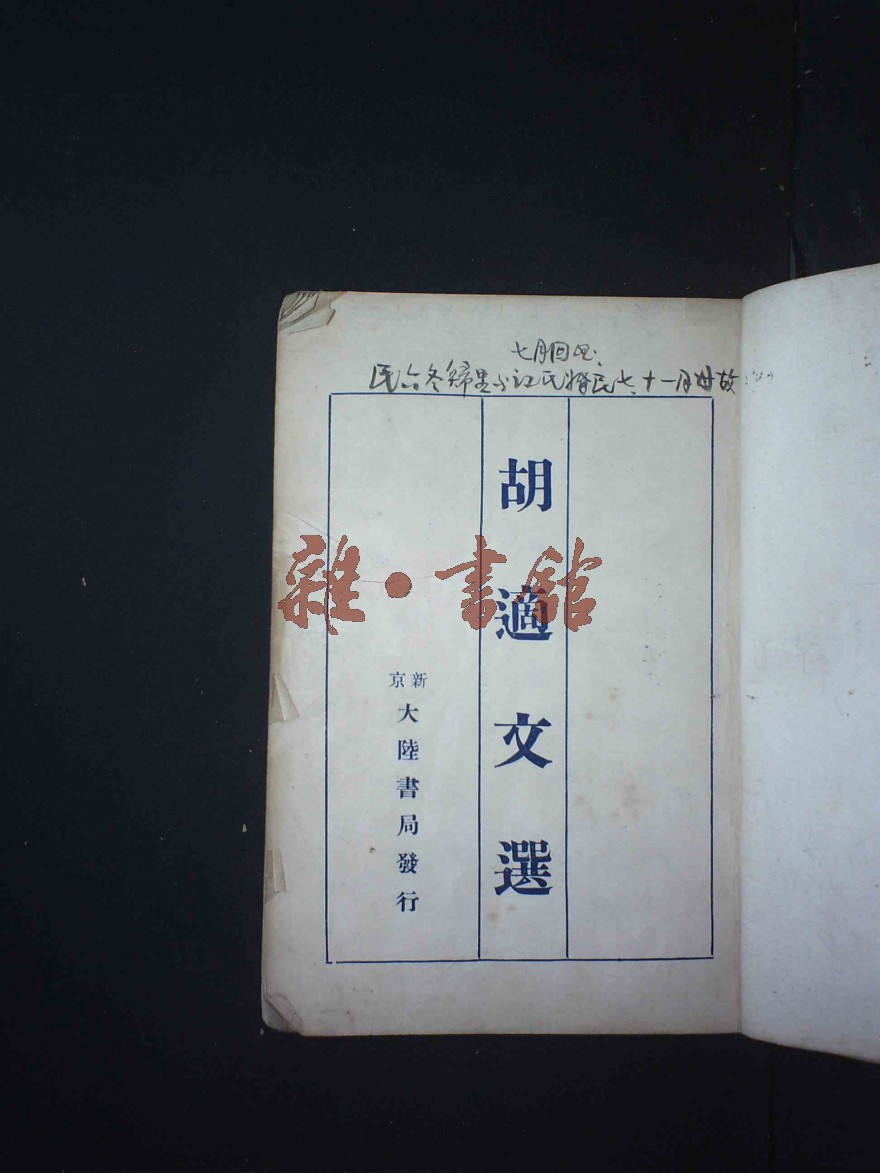 七月回国、
民六冬歸里与江氏婚民七、十一月母故
胡適文選
雜·書館
新京
大陸書局發行